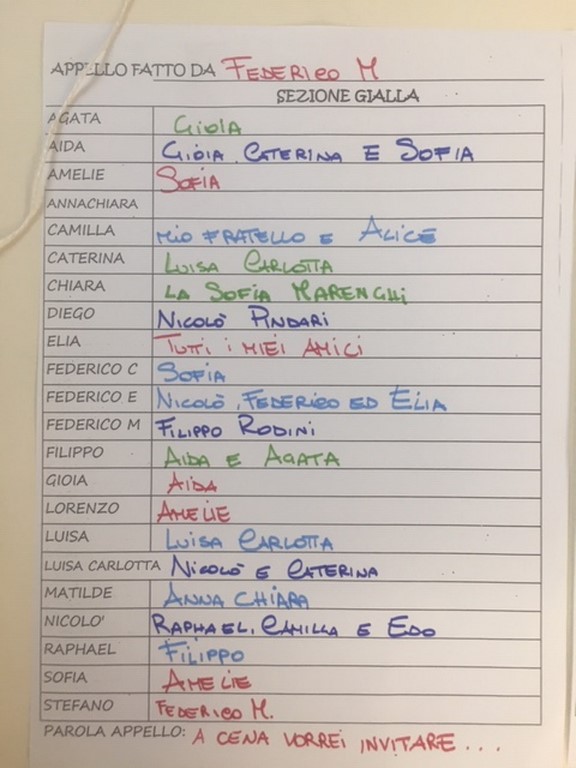 APPELLO FATTO DA FEDERICO M
SEZIONE GIALLA
AGATA GIOIA
AIDA GIOIA, CATERINA E SOFIA
AMELIE SOFIA
ANNACHIARA
CAMILLA MIO FRATELLO E ALICE
CATERINA LUISA CARLOTTA
CHIARA LA SOFIA MARENGHI
DIEGO NICOLÒ PINDARI
ELIA TUTTI I MIEI AMICI
FEDERICO C SOFIA
FEDERICO E NICOLÒ, FEDERICO ED ELIA
FEDERICO M FILIPPO RODINI
FILIPPO AIDA E AGATA
GIOIA AIDA
LORENZO AMELIE
LUISA LUISA CARLOTTA
LUISA CARLOTTA NICOLÒ E CATERINA
MATILDE ANNA CHIARA
NICOLO' RAPHAEL, CAMILLA E EDO
RAPHAEL FILIPPO
SOFIA AMELIE
STEFANO FEDERICO M.
PAROLA APPELLO: A CENA VORREI INVITARE...